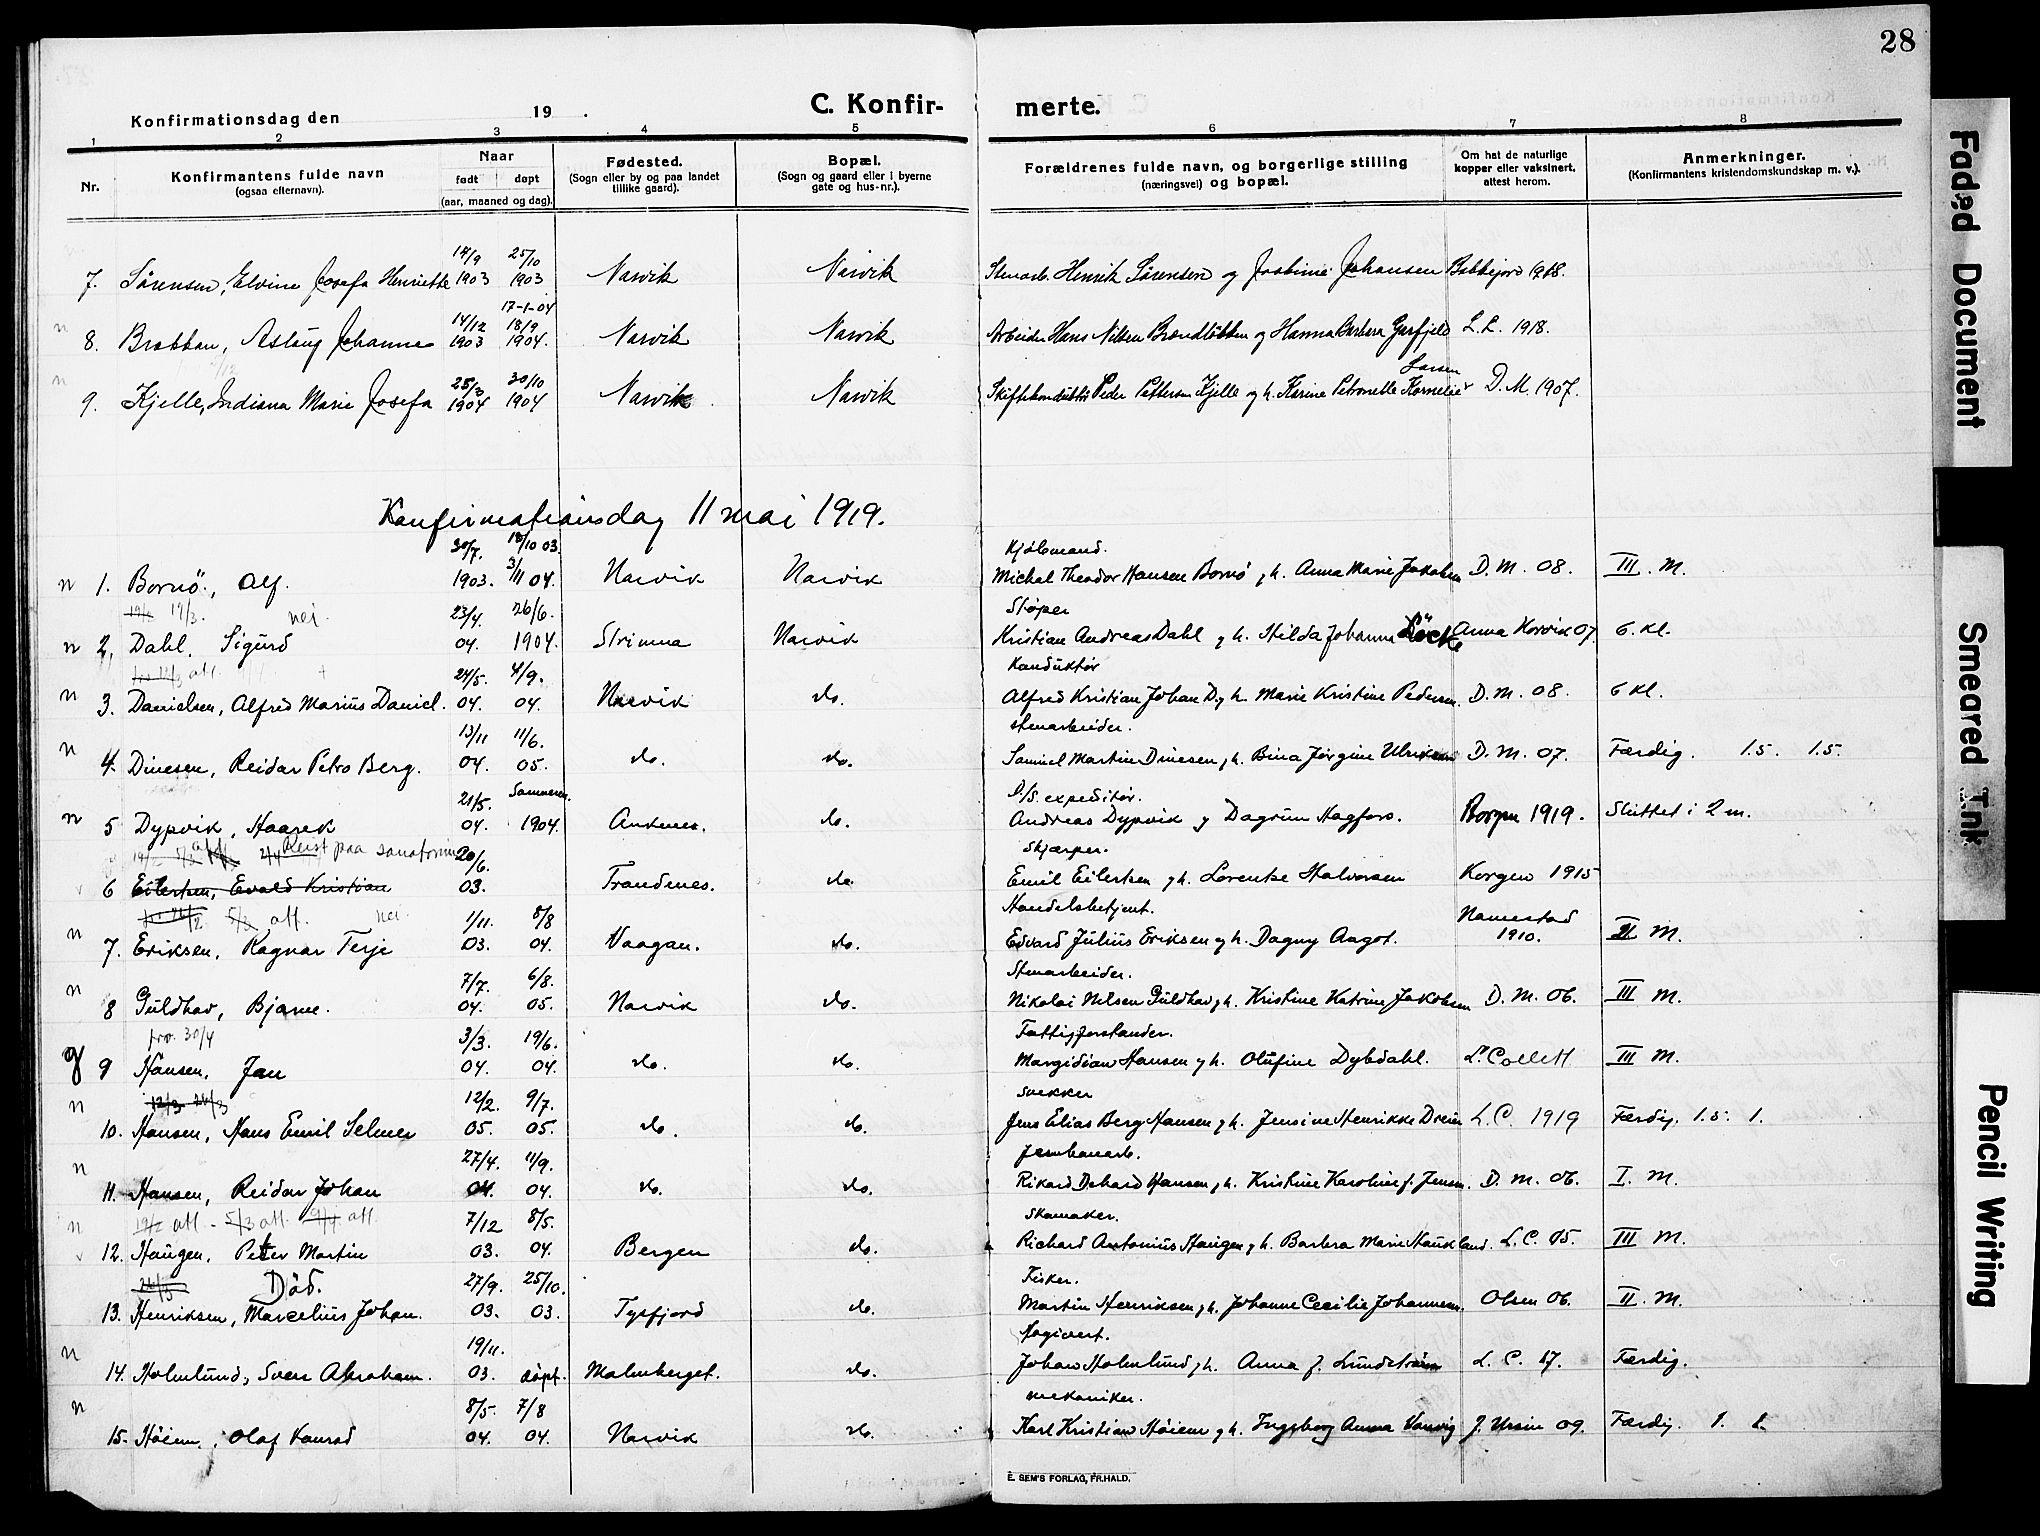 28
Konfirmationsdag den 19 .
C. Konfir- merte.
1 2 3 4 5 6 7 8
Nr.
Konfirmantens fulde navn
(ogsaa efternavn).
Naar
født døpt
(aar, maaned og dag).
Fødested.
(Sogn eller by og paa landet
tillike gaard).
Bopæl.
(Sogn og gaard eller i byerne
gate og hus-nr.).
Forældrenes fulde navn, og borgerlige stilling
(næringsvei) og bopæl.
Om hat de naturlige
kopper eller vaksinert,
attest herom.
Anmerkninger.
(Konfirmantens kristendomskundskap m. v.).
14/9 25/10
7. Sørensen, Elvine Josefa Henriette 1903 1903 Narvik Narvik Stenarb. Henrik Sørensen og Johansen 1918.
17-1-04
n 14/12 18/9
8. Brækkan, Aslaug Johanne 1903 1904. Narvik Narvik Arbeider Hans Nilsen og Hanna Barbara L. L. 1918.
n 25/3 30/10 Larsen
9. Kjelle, Indiana Marie Josefa 1904 1904 Narvik Narvik Peder Pettersen Kjelle og h. Karine Petronelle D. M. 1907.
Konfirmationsdag 11 mai 1919.
30/7. 18/10 03. Kjøbmand.
3/11 04.
n 1. Bornö, Alf. 1903. Narvik Narvik Michal Theodor Hansen Bornö g h. Anna Marie Jakobsen D. M. 08. III. M.
19/2 19/3. nei. 23/4. 26/6. Støper
n 2, Dahl, Sigurd 04. 1904. Strinna Narvik Kristian Andreas Dahl g h. Hilda Johanna Löck Anna 07. 6. kl.
att. 24/5. 4/9. Konduktør
n 3. Danielsen, Alfred Marius Daniel. 04. 04. Narvik do. Alfred Kristian Johan D. g h. Marie Kristine Pedersen. D. M. 08. 6 kl.
13/11 11/6. stenarbeider.
n 4. Dinesen, Reidar Petro Berg. 04. 05. do. do. Samuel Martin Dinesen g h. Bina Jørgine Ulriksen D. M. 07. Færdig. 1.5. 1.5.
21/5. Sommeren. D/S. expeditør.
n 5 Dypvik, Haarek 04. 1904. Ankenes. do. Andreas Dypvik g Dagrun Hagfors. Borgen 1919. Sluttet i 2 m.
paa sanatorium 20/6. Skjærper.
6 Eilertsen, Evald Kristian 03. Trandenes. do. Emil Eilertsen g h. Lorentse Halvorsen Korgen 1915
5/3 att. nei. 1/11. 8/8 Handelsbetjent.
n 7. Eriksen, Ragnar Terje 03. 04. Vaagan. do. Edvard Julius Eriksen g h. Dagny Aagot. 1910. II M.
7/7. 6/8. Stenarbeider.
n 8 Guldhav, Bjarne. 04. 05. Narvik do. Nikolai Nilsen Guldhav g h. Kristine Katrine Jakobsen D. M. 06. III M.
30/4 3/3. 19/6. Fattigforstander.
g 9 Hansen, Jan 04. 04. do. do. Margidian Hansen g h. Olufine Dybdahl. Lr Collett III M.
12/3 12/2. 9/7. snekker
n 10. Hansen, Hans Emil Selmer 05. 05. do. do. Jens Elias Berg Hansen g h. Jensine Henrikke L. C. 1919 Færdig. 1.5. 1.
27/4. 11/9. Jernbanearb.
n 11. Hansen, Reidar Johan 04. 04. do. do. Rikard Hansen g h. Kristine Karoline f. Jensen. D. M. 06. I. M.
19/2 att. - 5/3 att. 9/4 att. 7/12 8/5. Skomaker.
n 12. Haugen, Peter Martin 03. 04. Bergen do. Richard Antonius Haugen g h. Barbra Marie Haukland. L. C. 05. III M.
Död. 27/9. 25/10. Fisker.
13. Henriksen, Marcelius Johan. 03. 03. Tysfjord do. Martin Henriksen g h. Johanne Cecilie Johannesen. Olsen 06. II. M.
19/11.
n 14. Holmlund, Sven Abraham. 03. döpt. Malmberget. do. Johan Holmlund g h. Anna f. Lundström L. C. 17. Færdig.
8/5. 7/8 mekaniker.
n 15. Høiem, Olaf Konrad 04. 04. Narvik do. Karl Kristian Høiem g h. Ingeborg Anna J. Ursin 09. Færdig. 1. 1.
E. SEM'S FORLAG, FR.HALD.
Faded Document
Smeared Ink
Pencil Writing